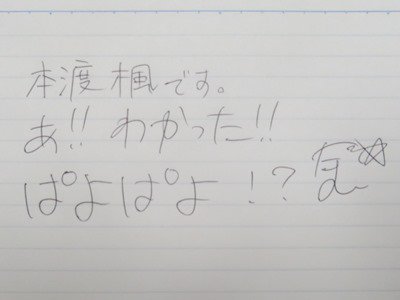 本渡楓です。
あ!! わかった!!
ぱよぱよ!?